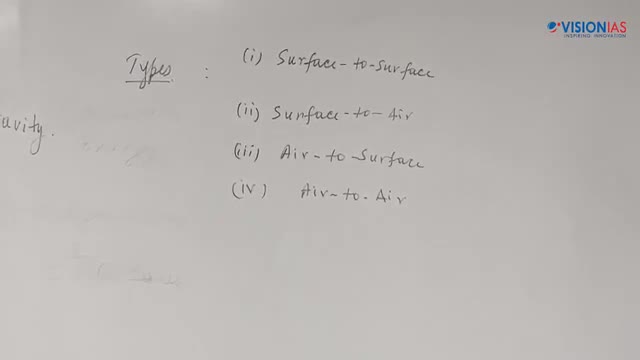 VISIONIAS
INSPIRING INNOVATION
Types : (i) Surface-to-Surface
(ii) Surface-to-Air
(iii) Air-to-Surface
(iv) Air-to-Air
avity.